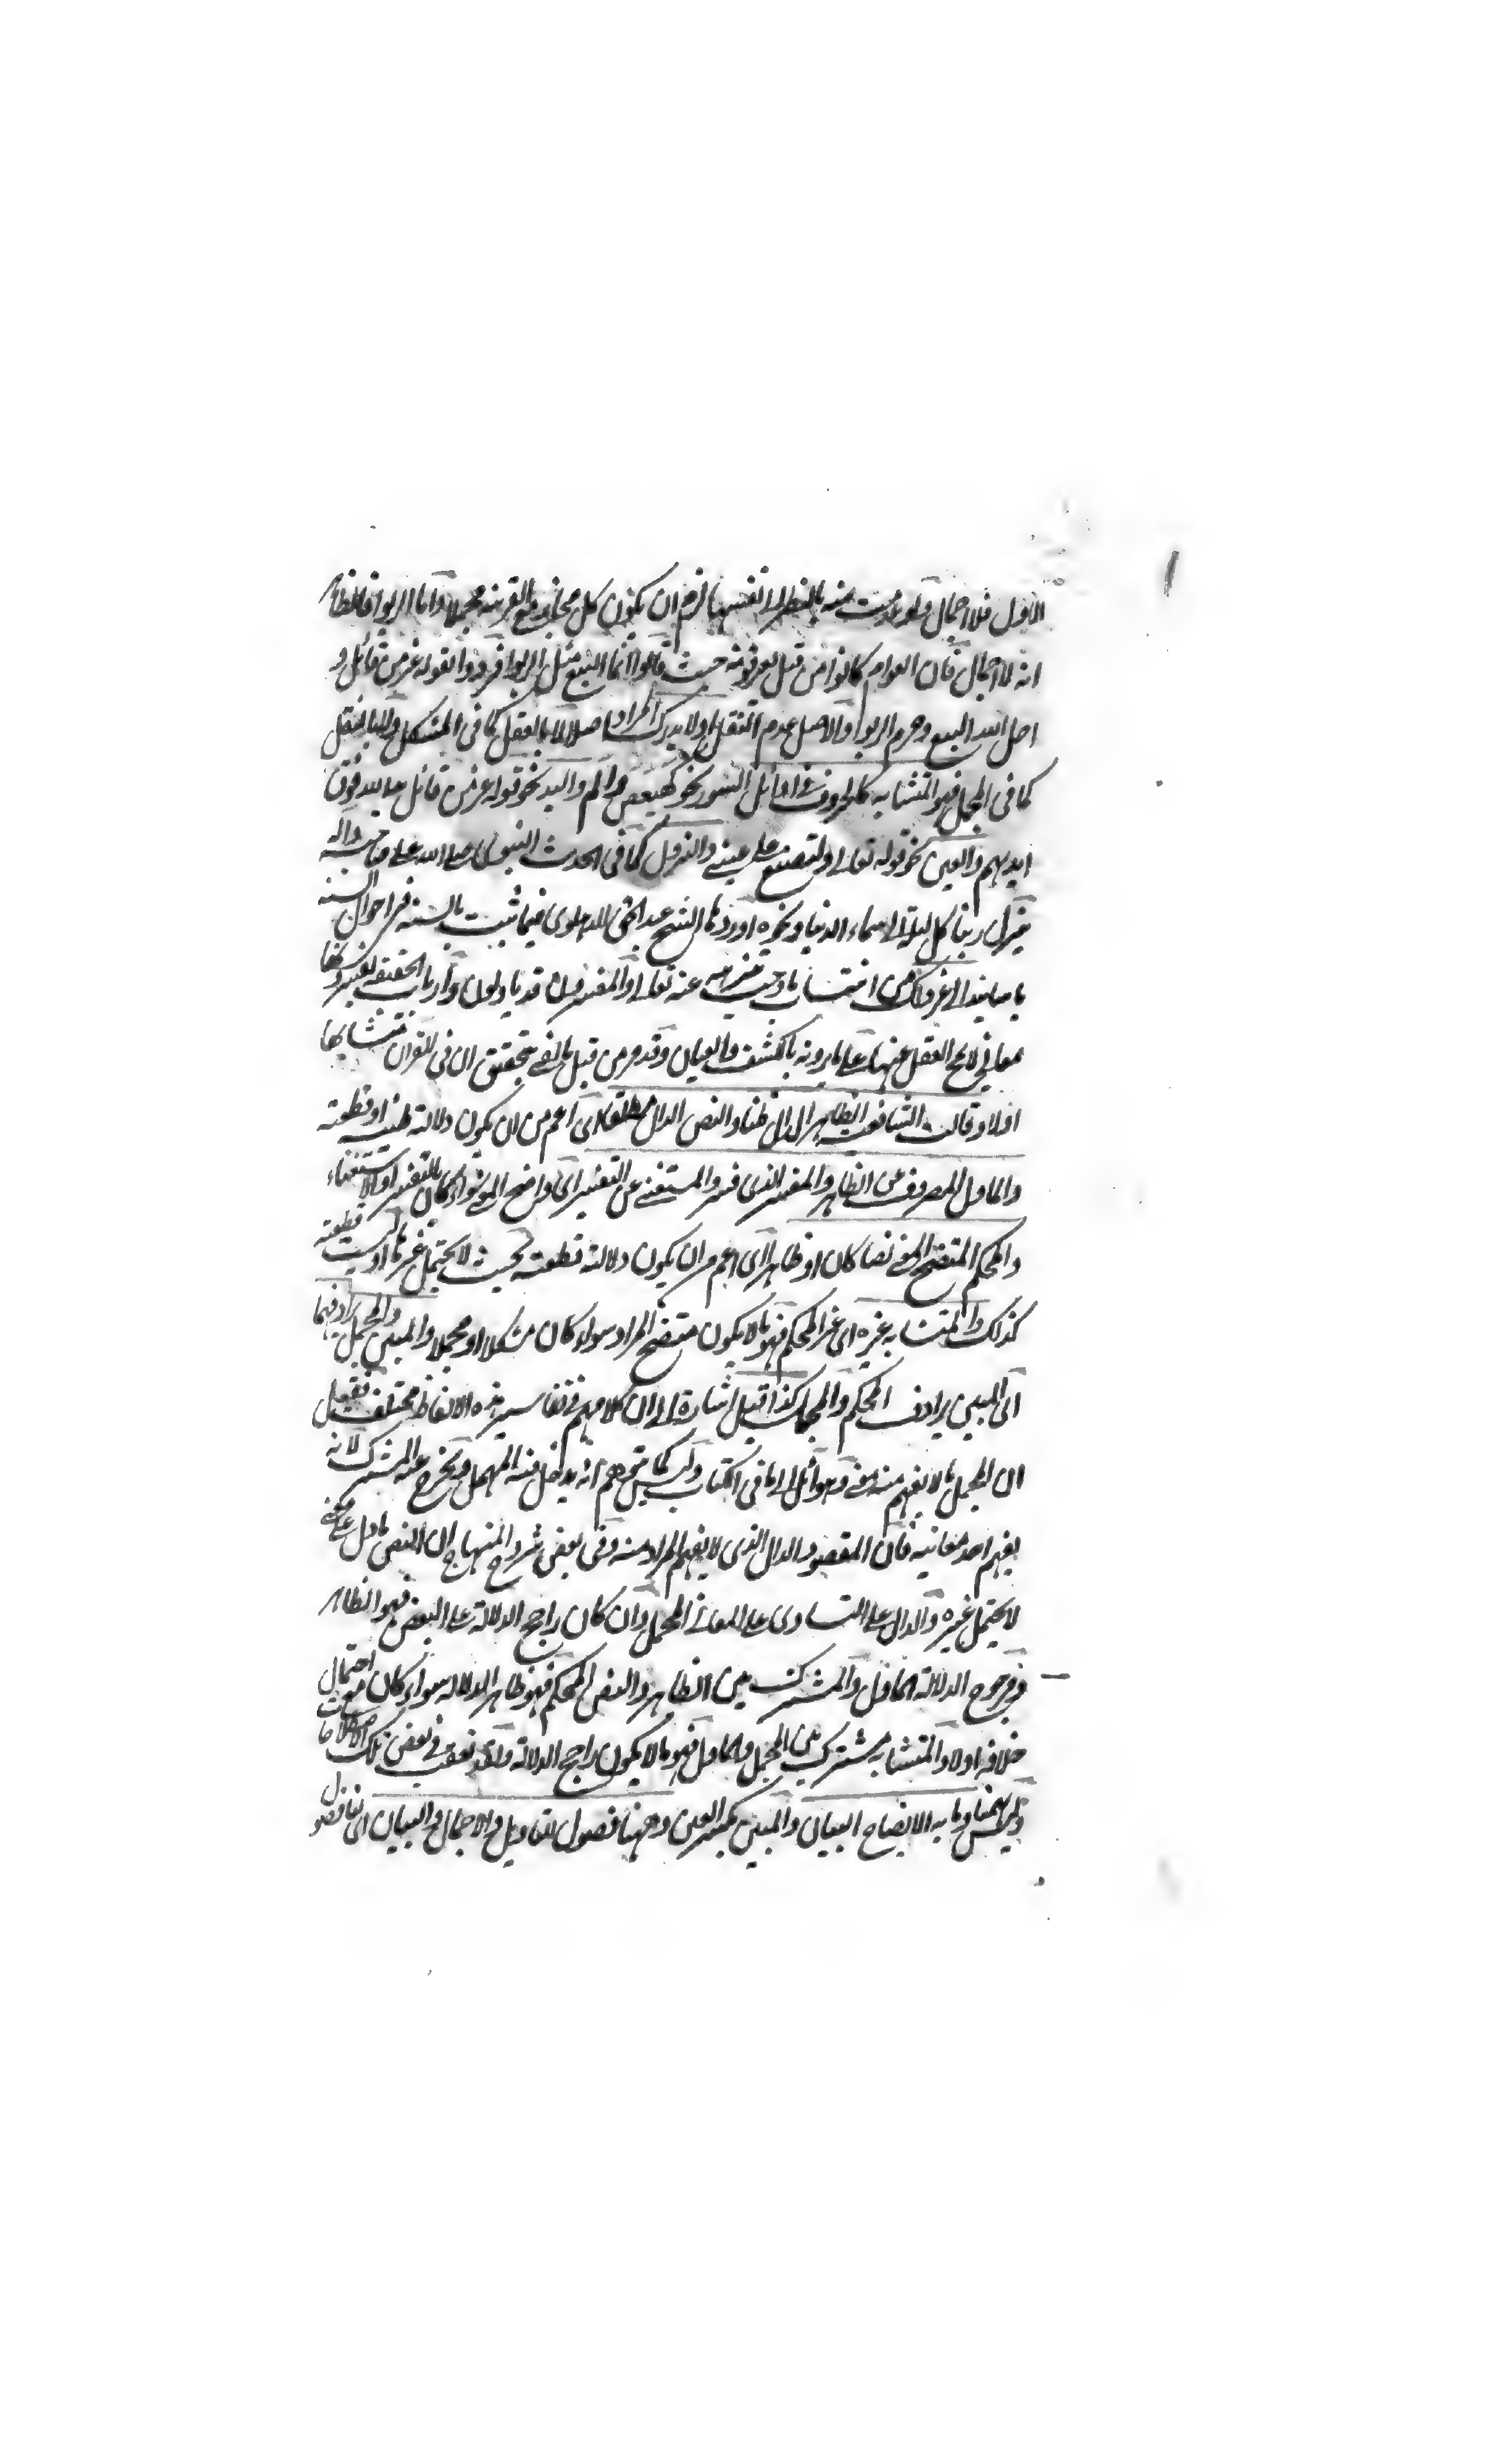 الاول فلا اجمال ولو بالنظر الى نفسها لزم ان يكون كل مجاز مع القرينة مجملا واما الربوا فالظاهر
انه لا اجمال فان العوام كانوا من قبل يعرفونه حيث قالوا انما البيع مثل الربوا فردوا بقوله عز من قائل و
احل الله البيع وحرم الربوا والاصل عدم النقل اولا يدرك المراد اصلا لا بالعقل كما في المشكل ولا بالنقل
كما في المجمل فهو المتشابه كالحروف في اوائل السور نحو كهيعص والم واليد نحو قوله عز من قائل يد الله فوق
ايديهم والعين نحو قوله تعالى ولتصنع على عيني والنزول كما في الحديث النبوي صلى الله على صاحبه واله
ينزل ربنا كل ليلة الى سماء الدنيا ونحوه اوردها الشيخ عبد الحق الدهلوي فيما ثبت بالسنة في احوال السنة
باسانيد الى غير ذلك من انتساب ما وجب تنزيهه عنه تعالى والمفسرون قد ياولون وارباب الحقيقة يفسرونها
بمعاني لا يلج العقل عنها على ما يرونه بالكشف والعيان وقد مر من قبل ما لنفي تحقق ان في القران متشابها
اولا وقالت الشافعية الظاهر الدال ظنا والنص الدال مطلقا اى اعم من ان يكون دلالته ظنية او قطعية
والماول المصروف عن الظاهر والمفسر الذى فسر والمستغنى عن التفسير اى واضح المعنى سواء كان بالتفسير او الاستغناء
والمحكم المتضح المعنى نصا كان او ظاهرا اى اعم من ان يكون دلالته قطعية بحيث لا يحتمل غيرها او ليست قطعية
كذلك والمتشابه غيره اى غير المحكم فهو ما لا يكون متضح المراد سواء كان مشكلا او مجملا والمبين والمجمل يرادفهما
اى المبين يرادف المحكم والمجمل كذا قيل اشارة الى ان كلامهم في تفاسير هذه الالفاظ مختلف فقيل
ان المجمل ما لا يفهم منه معنى وهو آئل الى ما في الكتاب وليس كما يتوهم انه يدخل فيه المهمل ويخرج عنه المشترك لانه
يفهم احد معانيه فان المقصود الدال الذى لا يفهم المراد منه وفى بعض شروح المنهاج ان النص ما دل على معنى
لا يحتمل غيره والدال على التساوى على المعانى المجمل وان كان راجح الدلالة على البعض فهو الظاهر
ومرجوح الدلالة الماول والمشترك بين الظاهر والنص المحكم فهو ظاهر الدلالة سواء كان مع احتمال
خلافه اولا والمتشابه مشترك بين المجمل والماول فهو ما لا يكون راجح الدلالة وقد تعقب في بعض تلك الاصطلاحات
وليس بهمنا وما به الايضاح البيان والمبين بكسر العين وههنا فصول للتاويل والاجمال والبيان اى